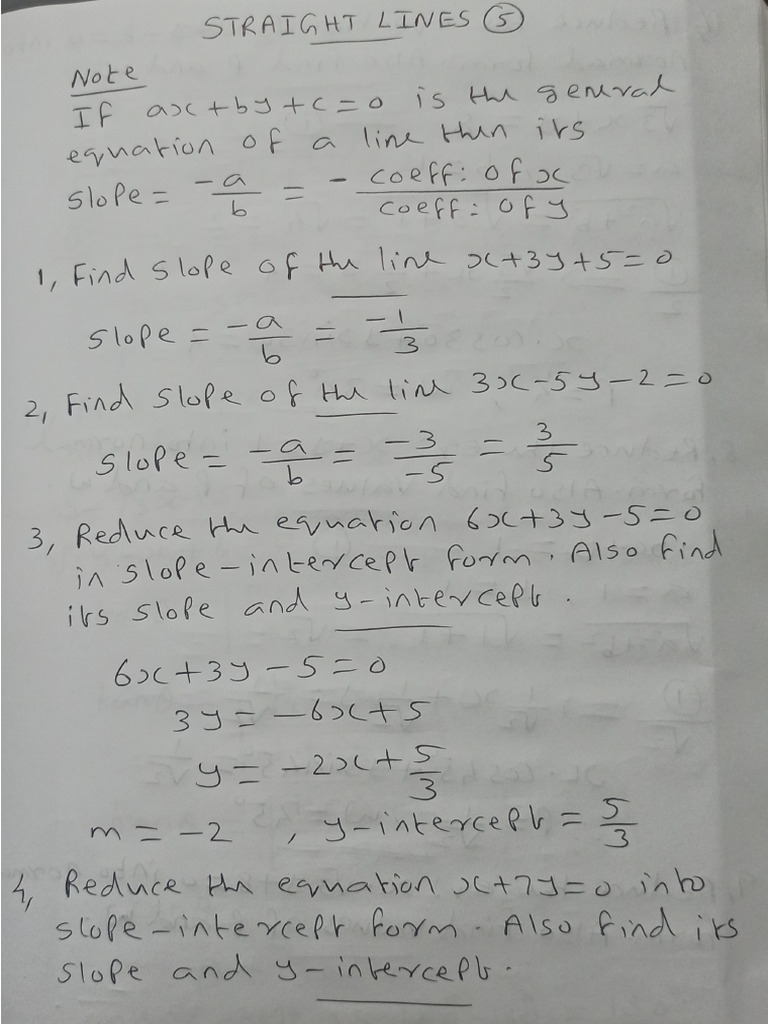 STRAIGHT LINES ⑤
Note
If ax+by+c=0 is the general
equation of a line then its
slope = -a/b = - coeff: of x / coeff: of y
1, Find slope of the line x+3y+5=0
slope = -a/b = -1/3
2, Find slope of the line 3x-5y-2=0
slope = -a/b = -3/-5 = 3/5
3, Reduce the equation 6x+3y-5=0
in slope-intercept form. Also find
its slope and y-intercept.
6x+3y-5=0
3y=-6x+5
y=-2x+5/3
m=-2, y-intercept=5/3
4, Reduce the equation x+7y=0 into
slope-intercept form. Also find its
slope and y-intercept.